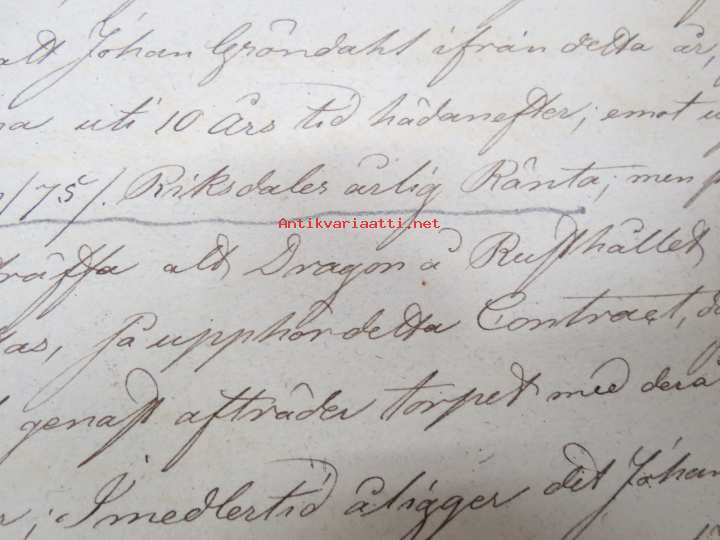 att Johan Gröndahl ifrån detta år,
uti 10 Års tid hädanefter, emot
/75/. Riksdaler årlig Ränta; men
Antikvariaatti.net
träffa att Dragon å Rusthållet
så upphör detta Contract,
genast afträder torpet med dera
Imedlertid åligger det Johan